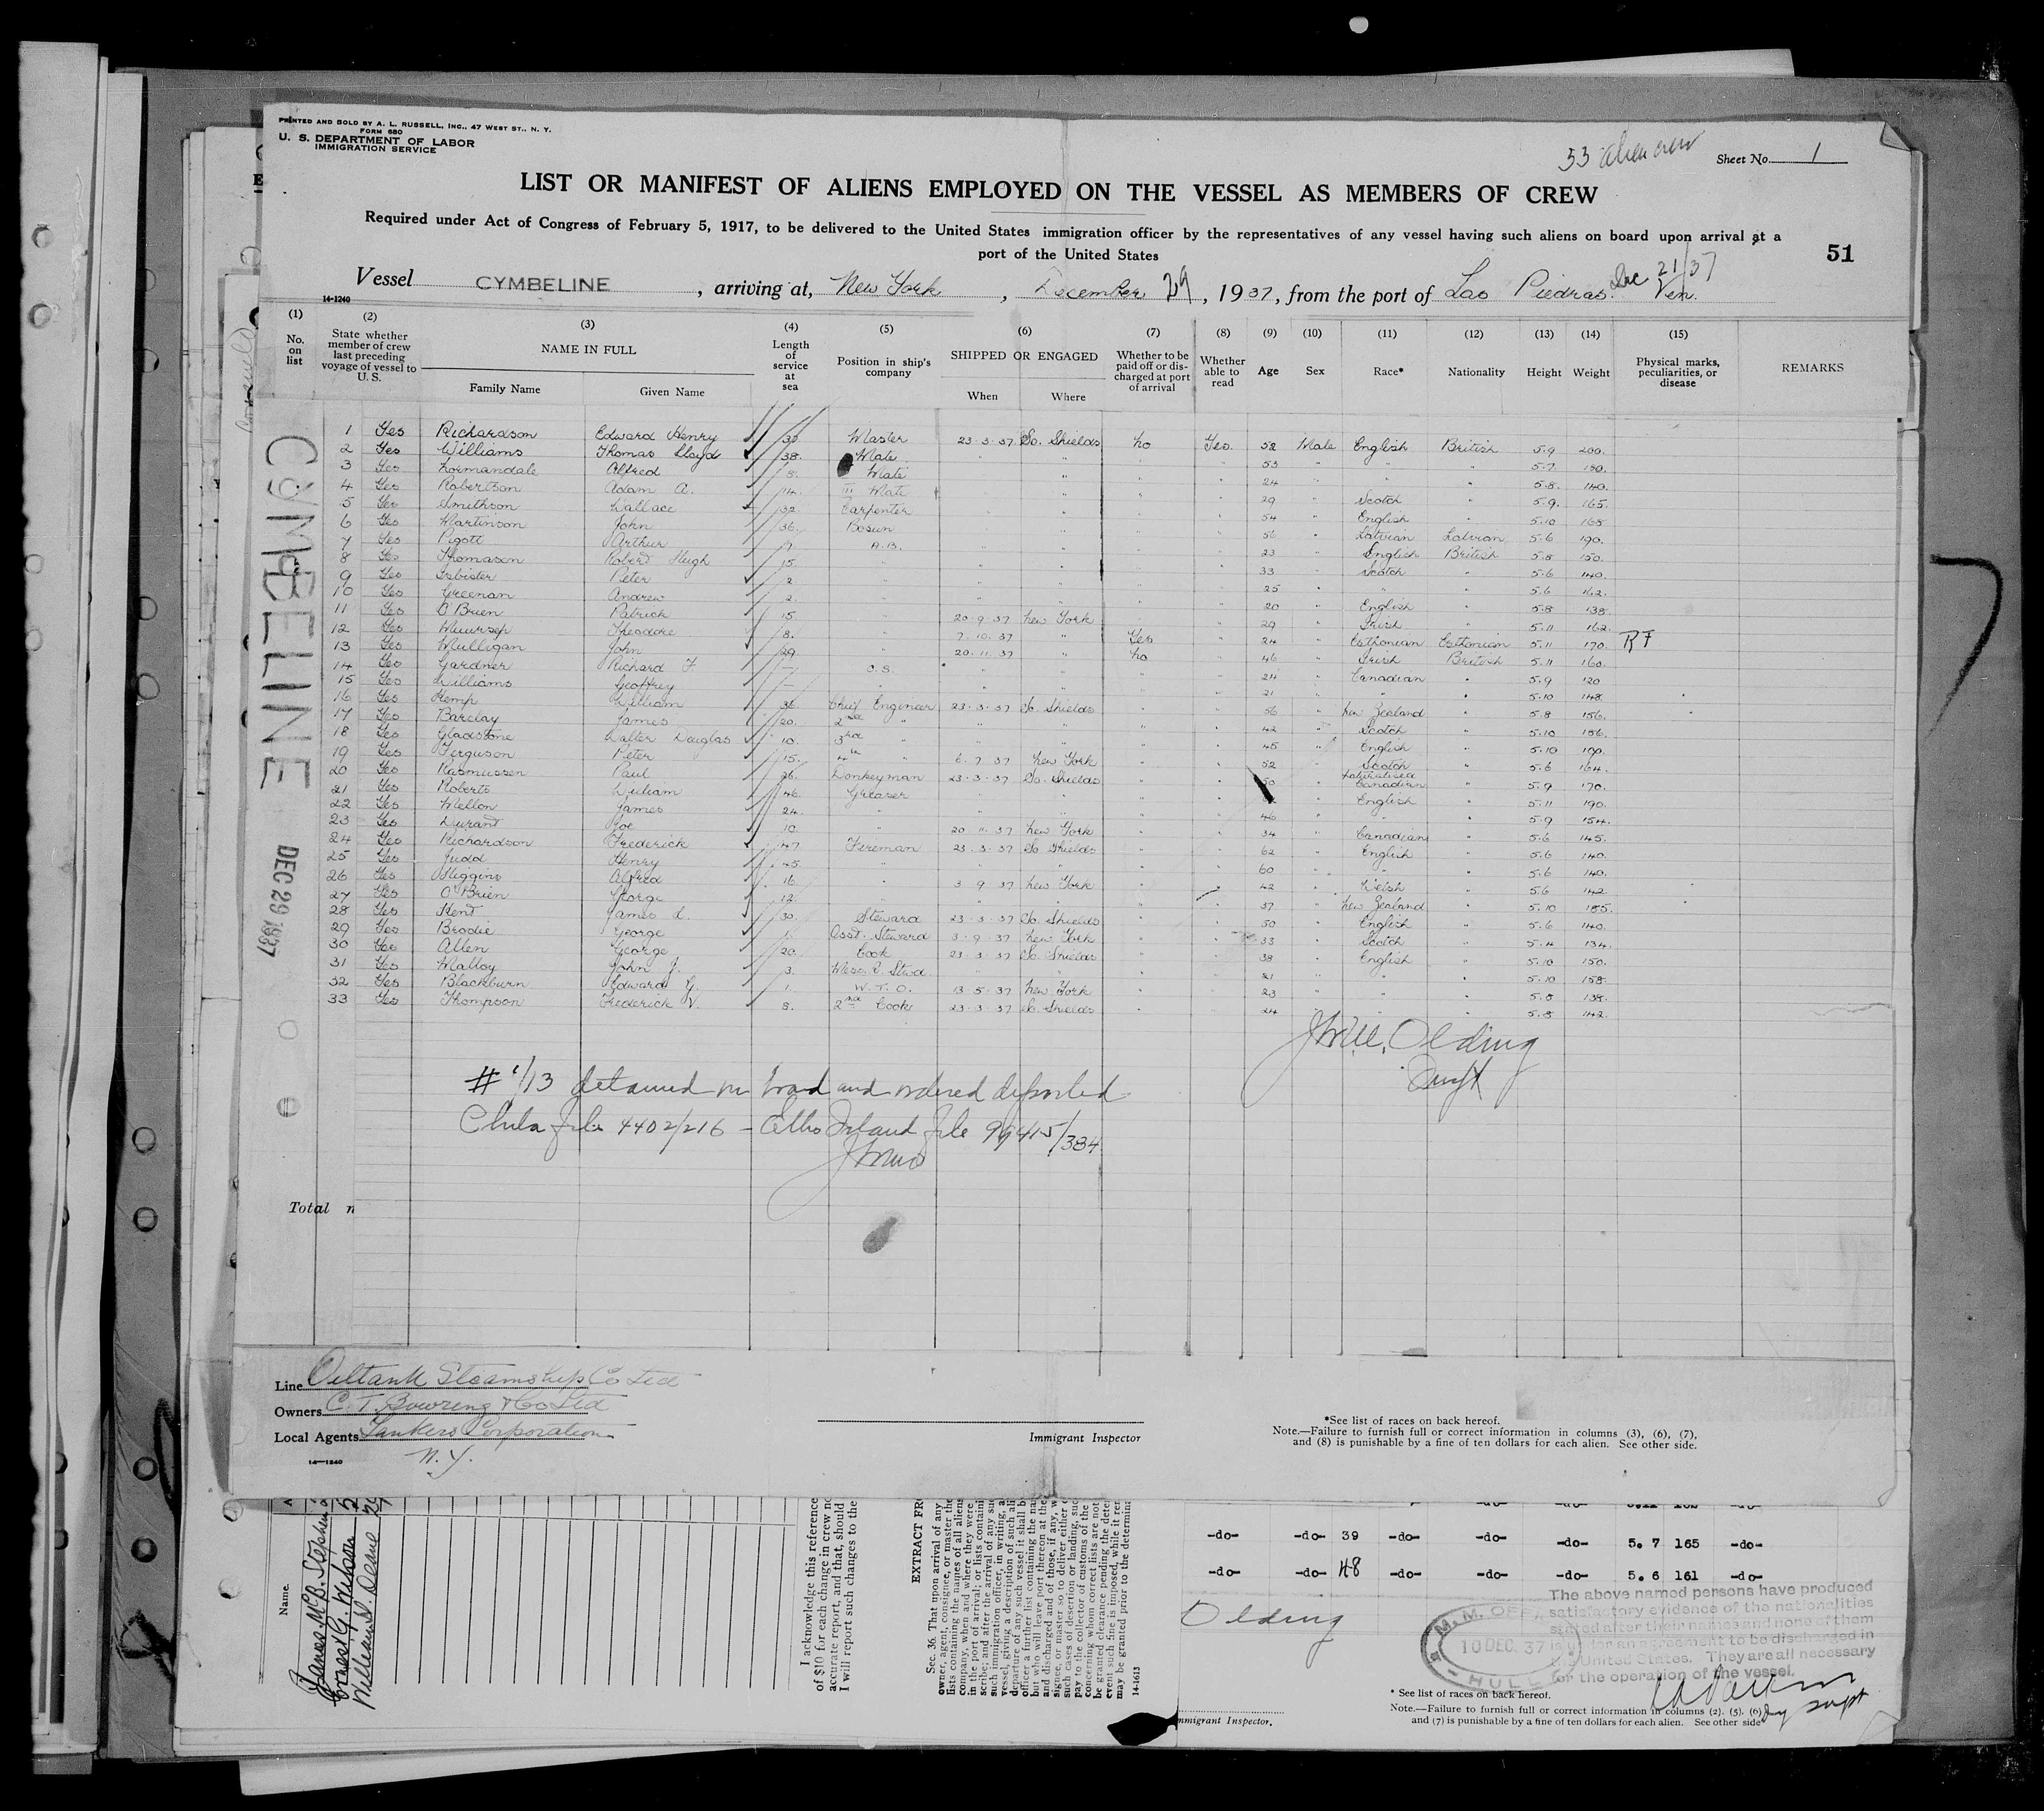 PRINTED AND SOLD BY A. L. RUSSELL, INC., 47 WEST ST., N. Y.
FORM 680
U. S. DEPARTMENT OF LABOR
IMMIGRATION SERVICE
53 alien crew
Sheet No. 1
LIST OR MANIFEST OF ALIENS EMPLOYED ON THE VESSEL AS MEMBERS OF CREW
Required under Act of Congress of February 5, 1917, to be delivered to the United States immigration officer by the representatives of any vessel having such aliens on board upon arrival at a
port of the United States
51
Vessel CYMBELINE, arriving at, New York, December 29, 1937, from the port of Las Piedras. Ven. Dec 21/37
14-1240
(1) (2) (3) (4) (5) (6) (7) (8) (9) (10) (11) (12) (13) (14) (15)
No. on list
State whether member of crew last preceding voyage of vessel to U. S.
NAME IN FULL
Family Name Given Name
Length of service at sea
Position in ship's company
SHIPPED OR ENGAGED
When Where
Whether to be paid off or discharged at port of arrival
Whether able to read
Age Sex Race* Nationality Height Weight
Physical marks, peculiarities, or disease
REMARKS
1 Yes Richardson Edward Henry 30 Master 23.3.37 So. Shields No Yes 52 Male English British 5.9 200.
2 Yes Williams Thomas Lloyd 38. Mate " " " " 53 " " " 5.7 180.
3 Yes Normandale Alfred 8. Mate " " " " 24 " " " 5.8. 140.
4 Yes Robertson Adam A. 14. III Mate " " " " 29 " Scotch " 5.9. 165.
5 Yes Smithson Wallace 32. Carpenter " " " " 54 " English " 5.10 168
6 Yes Martinson John 36. Bosun " " " " 56 " Latvian Latvian 5.6 190.
7 Yes Pigott Arthur 7. A.B. " " " " 23 " English British 5.8 150.
8 Yes Thomason Robert Hugh 15. " " " " " 33 " Scotch " 5.6 140.
9 Yes Isbister Peter 2. " " " " " 25 " " " 5.6 162.
10 Yes Greenan Andrew 2. " " " " " 20 " English " 5.8 138.
11 Yes O'Brien Patrick 15 " 20.9.37 New York " " 29 " Irish " 5.11 162.
12 Yes Muursep Theodore 8. " 7.10.37 " Yes " 24 " Esthonian Esthonian 5.11 170. RF
13 Yes Mulligan John 29. " 20.11.37 " No " 46 " Irish British 5.11 160.
14 Yes Gardner Richard F. – O.S. " " " " 24 " Canadian " 5.9 120
15 Yes Williams Geoffrey – " " " " " 21 " " " 5.10 148.
16 Yes Kemp William 36 Chief Engineer 23.3.37 So. Shields " " 56 " New Zealand " 5.8 156.
17 Yes Barclay James 20. 2nd " " " " " 42 " Scotch " 5.10 156.
18 Yes Gladstone Walter Douglas 10. 3rd " " " " " 45 " English " 5.10 190.
19 Yes Ferguson Peter 15. 4th " 6.7.37 New York " " 52 " Scotch " 5.6 164.
20 Yes Rasmussen Paul 26. Donkeyman 23.3.37 So. Shields " " 50 " Naturalised Canadian " 5.9 170.
21 Yes Roberts William 46. Greaser " " " " " English " 5.11 190.
22 Yes Mellon James 24. " " " " " 46 " " " 5.9 154.
23 Yes Durant Joe 10. " 20.11.37 New York " " 34 " Canadian " 5.6 145.
24 Yes Richardson Frederick 47. Fireman 23.3.37 So. Shields " " 62 " English " 5.6 140.
25 Yes Judd Henry 45. " " " " " 60 " " " 5.6 140.
26 Yes Higgins Alfred 16 " 3.9.37 New York " " 42 " Welsh " 5.6 142.
27 Yes O'Brien George 12. " " " " " 37 " New Zealand " 5.10 185.
28 Yes Kent James L. 30. Steward 23.3.37 So. Shields " " 50 " English " 5.6 140.
29 Yes Brodie George 1. Asst. Steward 3.9.37 New York " " 33 " Scotch " 5.4 134.
30 Yes Allen George 20. Cook 23.3.37 So. Shields " " 38 " English " 5.10 150.
31 Yes Malloy John J. 3. Mess R. Stwd. " " " " 21 " " " 5.10 158.
32 Yes Blackburn Edward G. 1. W.T.O. 13.5.37 New York " " 23 " " " 5.8 138.
33 Yes Thompson Frederick V. 8. 2nd Cook 23.3.37 So. Shields " " 24 " " " 5.8 142.
CYMBELINE DEC 29 1937
Olding
# 1/13 detained on board and ordered deported
Phila file 4402/216 – Ellis Island file 99415/384
Total n
Line Oiltank Steamship Co Ltd
Owners C. T. Bowring & Co Ltd
Local Agents Tankers Corporation
N. Y.
14—1240
Immigrant Inspector
*See list of races on back hereof.
Note.—Failure to furnish full or correct information in columns (3), (6), (7),
and (8) is punishable by a fine of ten dollars for each alien. See other side.
Name.
I acknowledge this reference
of $10 for each change in crew
accurate report, and that, should
I will report such changes to the
EXTRACT FRO
Sec. 36. That upon arrival of any
14-1613
-do- -do- 39 -do- -do- -do- 5. 7 165 -do-
-do- -do- 48 -do- -do- -do- 5. 6 161 -do-
Olding
The above named persons have produced
satisfactory evidence of the nationalities
stated after their names and none of them
is under an agreement to be discharged in
the United States. They are all necessary
for the operation of the vessel.
M. M. OFF.
10 DEC. 37
HULL
* See list of races on back hereof.
Note.—Failure to furnish full or correct information in columns (2). (5). (6)
and (7) is punishable by a fine of ten dollars for each alien. See other side
mmigrant Inspector.